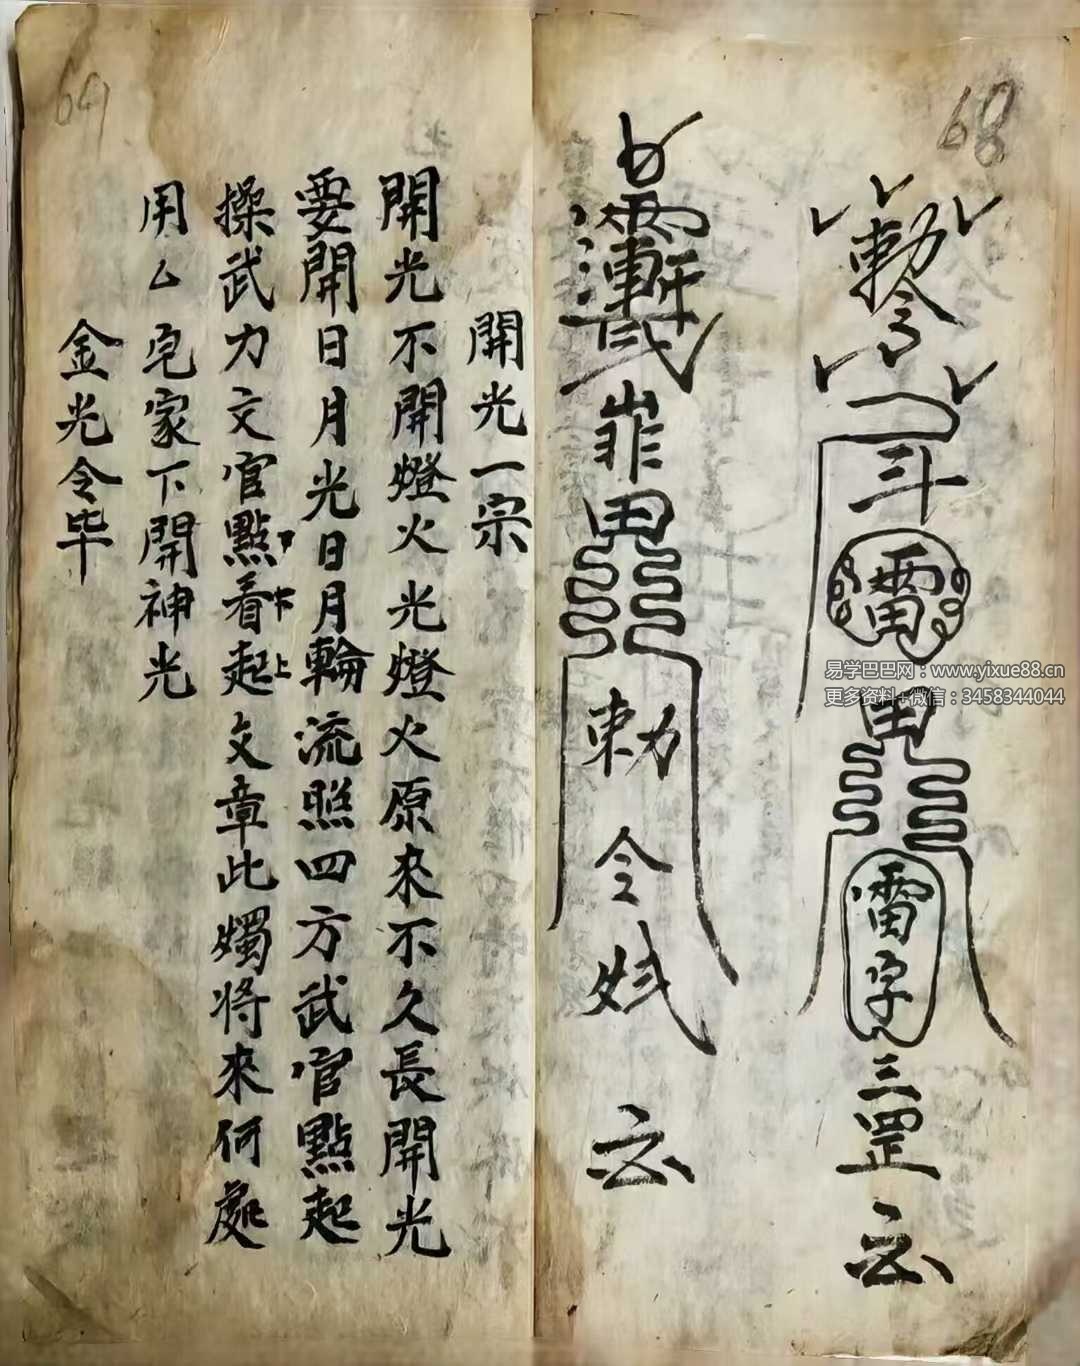 68
敕令
斗
雷
田
雷字
三罡
云
田
敕
令
云
69
開光一宗
開光不開燈火光燈火原來不久長開光
要開日月光日月輪流照四方武官點起
操武力文官點看起文章此燭將來何處
下
卞
上
用厶皃家下開神光
金光令毕
易学巴巴网：www.yixue88.cn
更多资料+微信：3458344044